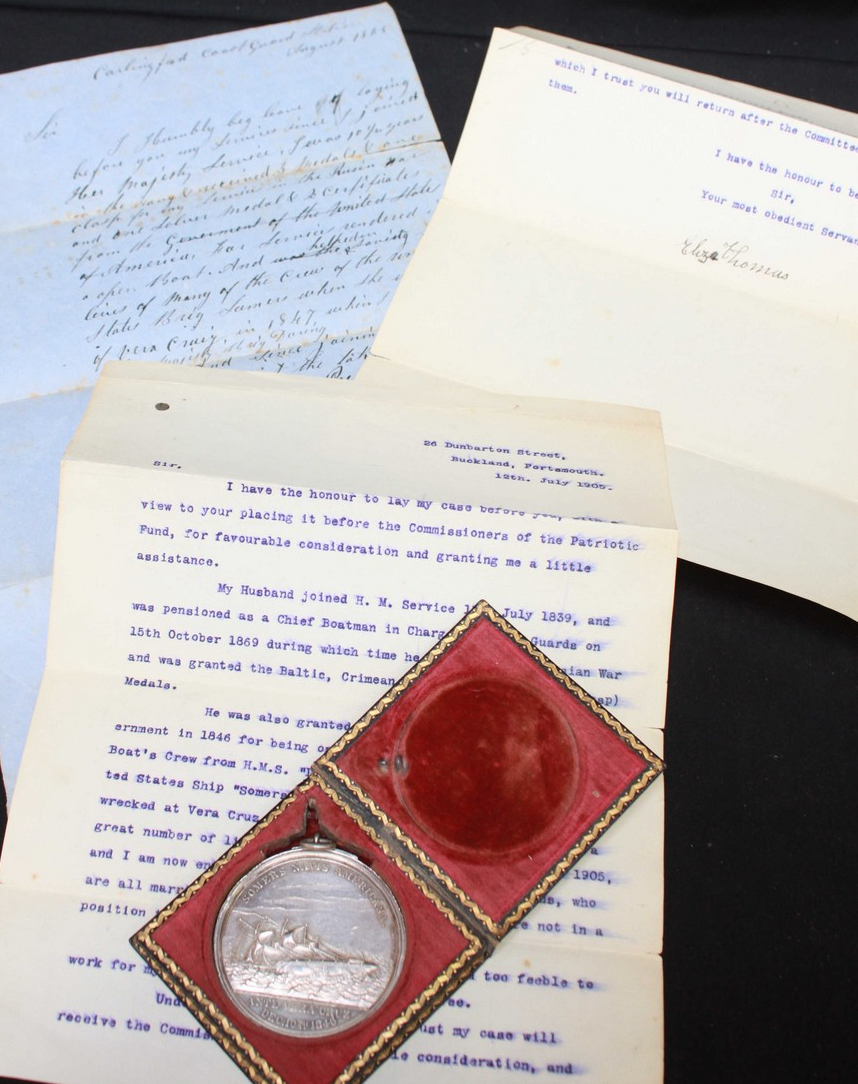 Carlingford Coast Guard Station
August
Sir
I Humbly beg leave of laying
before you my Services since I joined
Her Majesty Service. I was 10 7/12 years
in the navy & received 3 medals & one
Clasp for my Services in the Rusin war
and one Silver Medal & 2 Certificates
from the Goverment of the United States
of America, for Services rendered
a open Boat. And was helped in the Saving
lives of Many of the Crew of the
States Brig Sumers when she
of Vera Cruiz. in 1847
which I trust you will return after the Committee
them.
I have the honour to be
Sir,
Your most obedient Servan
Eliza Thomas
26 Dunbarton Street,
Buckland, Portsmouth.
12th. July 1905.
Sir.
I have the honour to lay my case before you, with a
view to your placing it before the Commissioners of the Patriotic
Fund, for favourable consideration and granting me a little
assistance.
My Husband joined H. M. Service July 1839, and
was pensioned as a Chief Boatman in Charg Guards on
15th October 1869 during which time he sian War
and was granted the Baltic, Crimean sp)
Medals.
He was also granted
ernment in 1846 for being o
Boat's Crew from H.M.S.
ted States Ship "Somers
wrecked at Vera Cruz
great number of li a
and I am now en 1905,
are all marr us, who
position re not in a
work for m too feeble to
Und ee.
receive the Commis ust my case will
le consideration, and
SOMERS NAVIS AMERICANA
ANTE VERA CRUZ
DEC. 10TH 1846